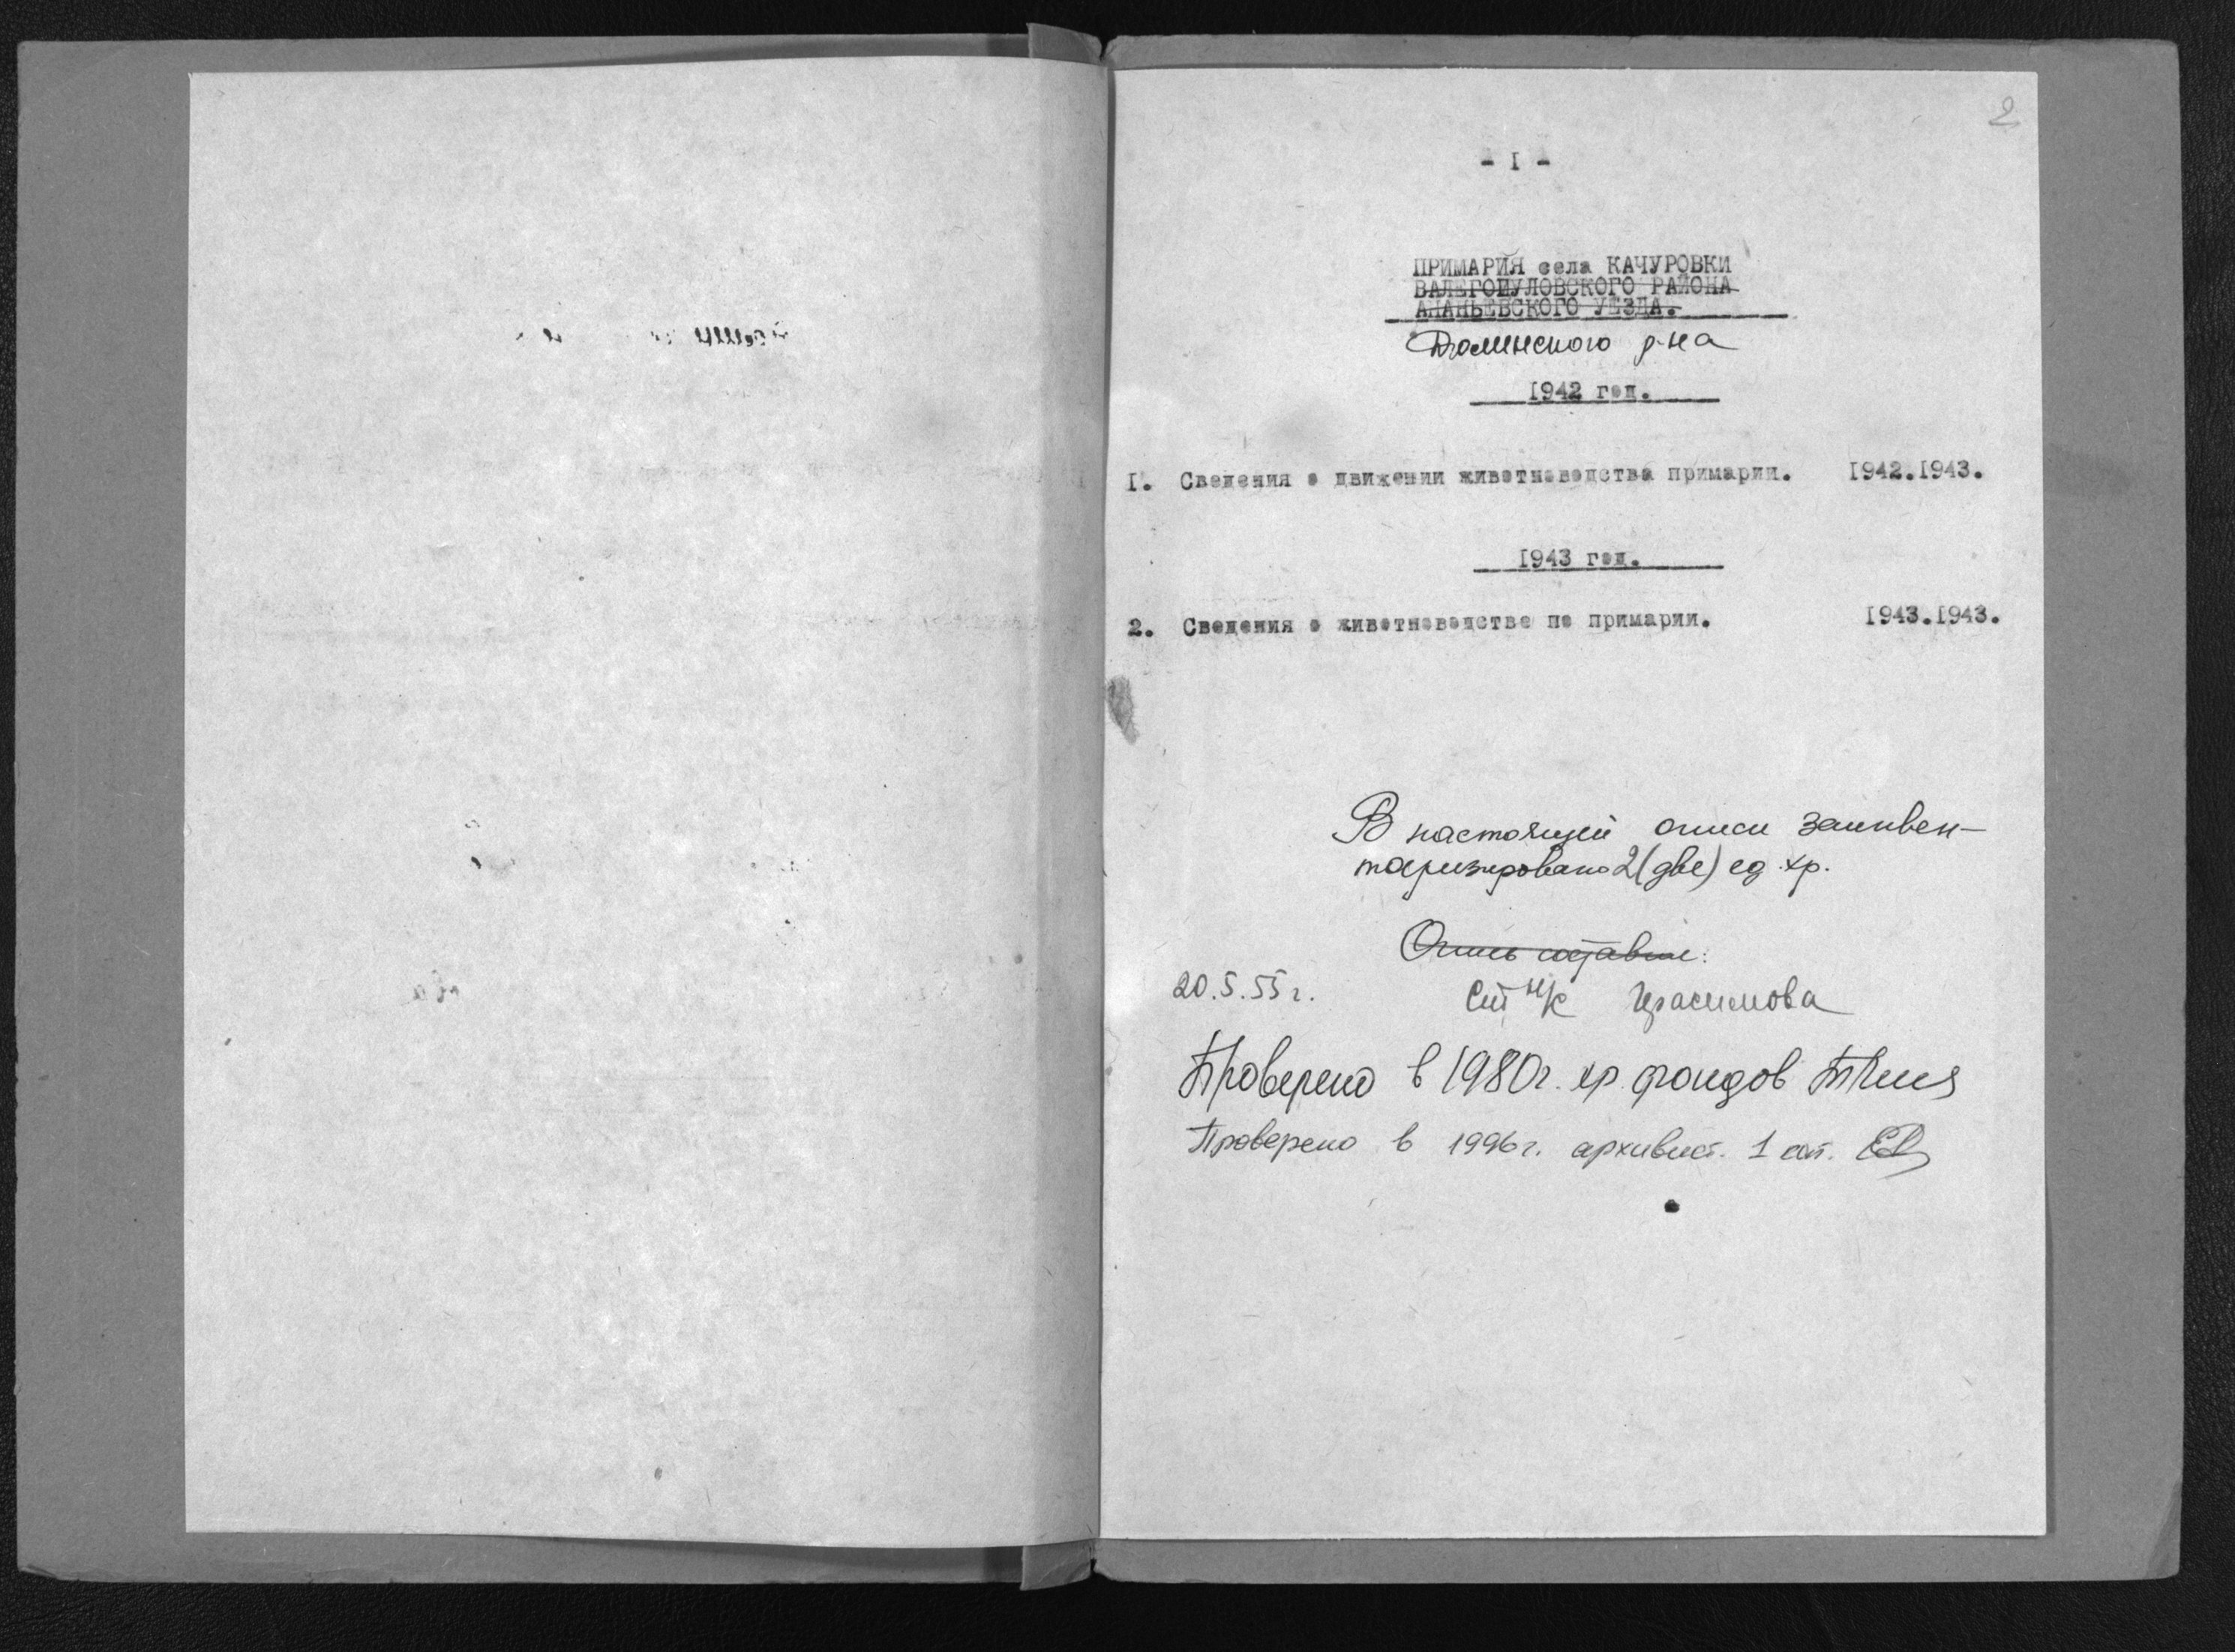 2
- I -
ПРИМАРИЯ села КАЧУРОВКИ
ВАЛЕГОЦУЛОВСКОГО РАЙОНА
АНАНЬЕВСКОГО УЕЗДА.
Долинского р-на
1942 год.
I. Сведения о движении животноводства примарии. 1942.1943.
1943 год.
2. Сведения о животноводстве по примарии. 1943.1943.
В настоящей описи заинвен-
таризировано 2 (две) ед. хр.
Опись составил:
20.5.55 г. Ст н/с Герасимова
Проверено в 1980г. хр. фондов
Проверено в 1996г. архивист. 1 кат.